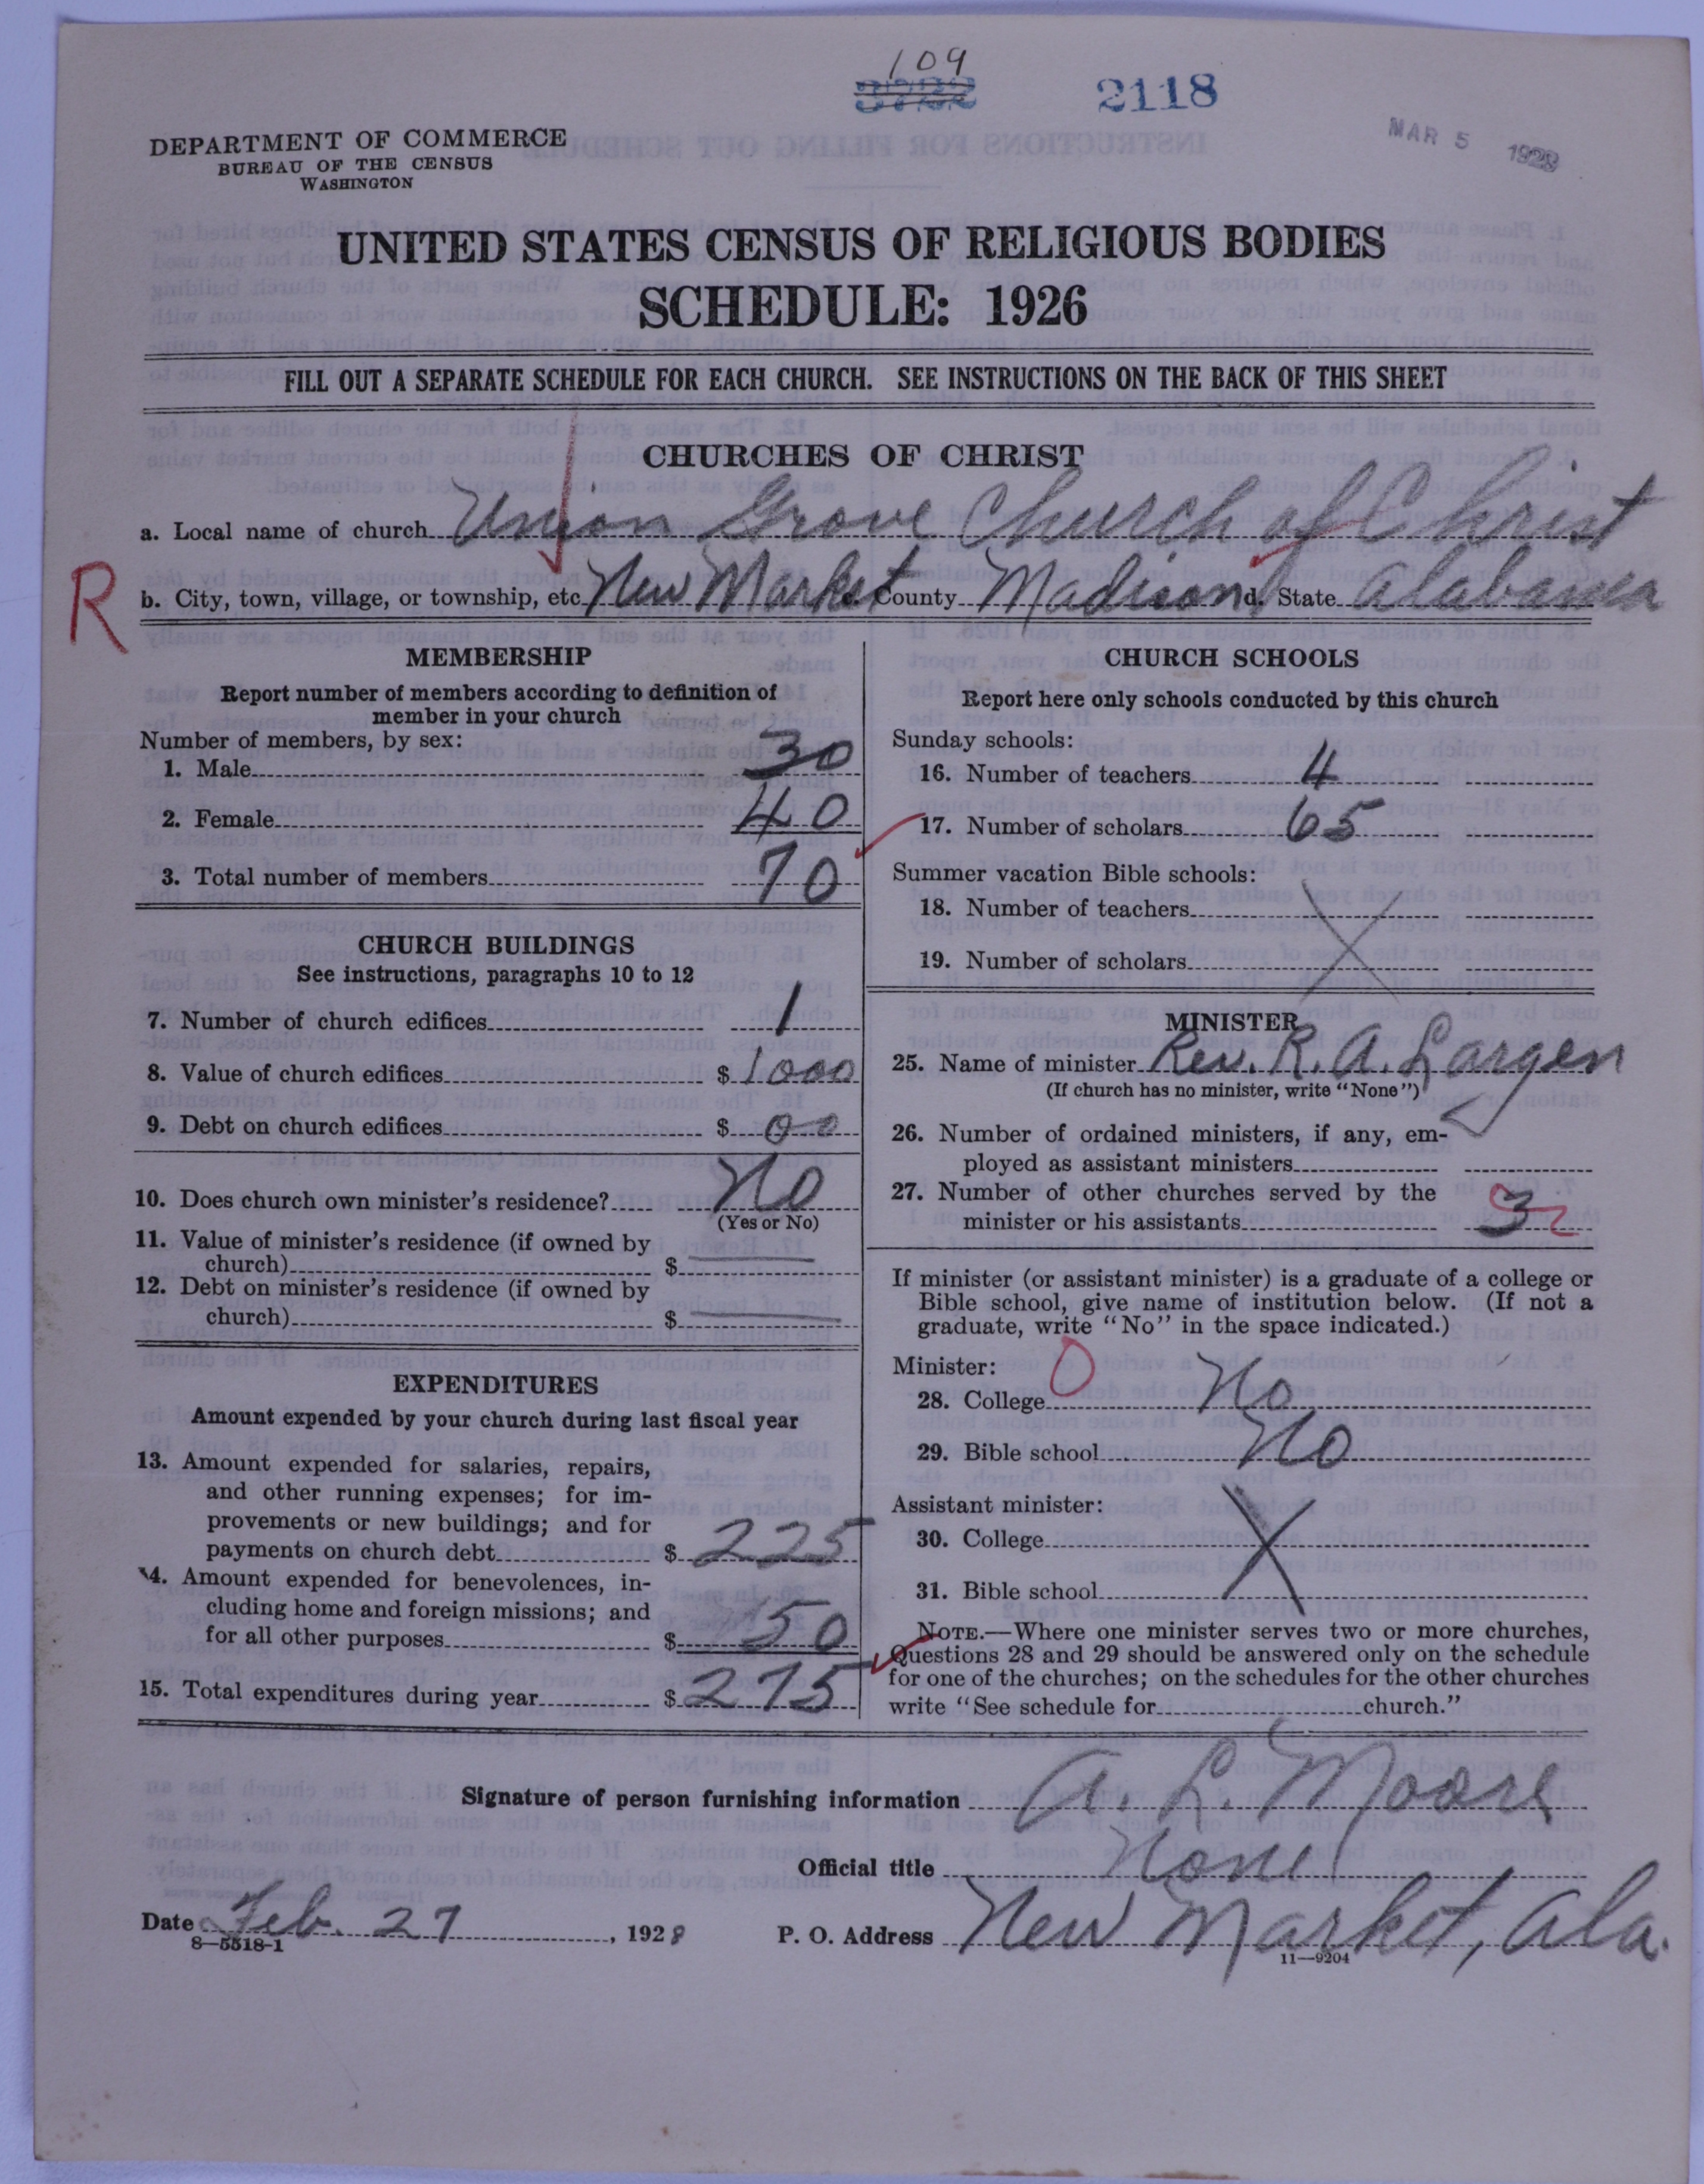 109
3722 2118
MAR 5 1928
DEPARTMENT OF COMMERCE
BUREAU OF THE CENSUS
WASHINGTON
UNITED STATES CENSUS OF RELIGIOUS BODIES
SCHEDULE: 1926
FILL OUT A SEPARATE SCHEDULE FOR EACH CHURCH. SEE INSTRUCTIONS ON THE BACK OF THIS SHEET
CHURCHES OF CHRIST
a. Local name of church Union Grove Church of Christ
R
b. City, town, village, or township, etc. New Market c. County Madison d. State Alabama
MEMBERSHIP
Report number of members according to definition of
member in your church
Number of members, by sex:
1. Male 30
2. Female 40
3. Total number of members 70
CHURCH BUILDINGS
See instructions, paragraphs 10 to 12
7. Number of church edifices 1
8. Value of church edifices $ 1000
9. Debt on church edifices $ 00
10. Does church own minister's residence? No
(Yes or No)
11. Value of minister's residence (if owned by
church) $
12. Debt on minister's residence (if owned by
church) $
EXPENDITURES
Amount expended by your church during last fiscal year
13. Amount expended for salaries, repairs,
and other running expenses; for im-
provements or new buildings; and for
payments on church debt $ 225
14. Amount expended for benevolences, in-
cluding home and foreign missions; and
for all other purposes $ 50
15. Total expenditures during year $ 275
CHURCH SCHOOLS
Report here only schools conducted by this church
Sunday schools:
16. Number of teachers 4
17. Number of scholars 65
Summer vacation Bible schools:
18. Number of teachers
19. Number of scholars
MINISTER
25. Name of minister Rev. R. A. Largen
(If church has no minister, write "None")
26. Number of ordained ministers, if any, em-
ployed as assistant ministers
27. Number of other churches served by the
minister or his assistants 3 2
If minister (or assistant minister) is a graduate of a college or
Bible school, give name of institution below. (If not a
graduate, write "No" in the space indicated.)
Minister: 0
28. College No
29. Bible school No
Assistant minister:
30. College X
31. Bible school
NOTE.—Where one minister serves two or more churches,
Questions 28 and 29 should be answered only on the schedule
for one of the churches; on the schedules for the other churches
write "See schedule for church."
Signature of person furnishing information A. L. Moore
Official title None
Date Feb. 27, 1928 P. O. Address New Market, Ala.
8—5518-1 11—9204